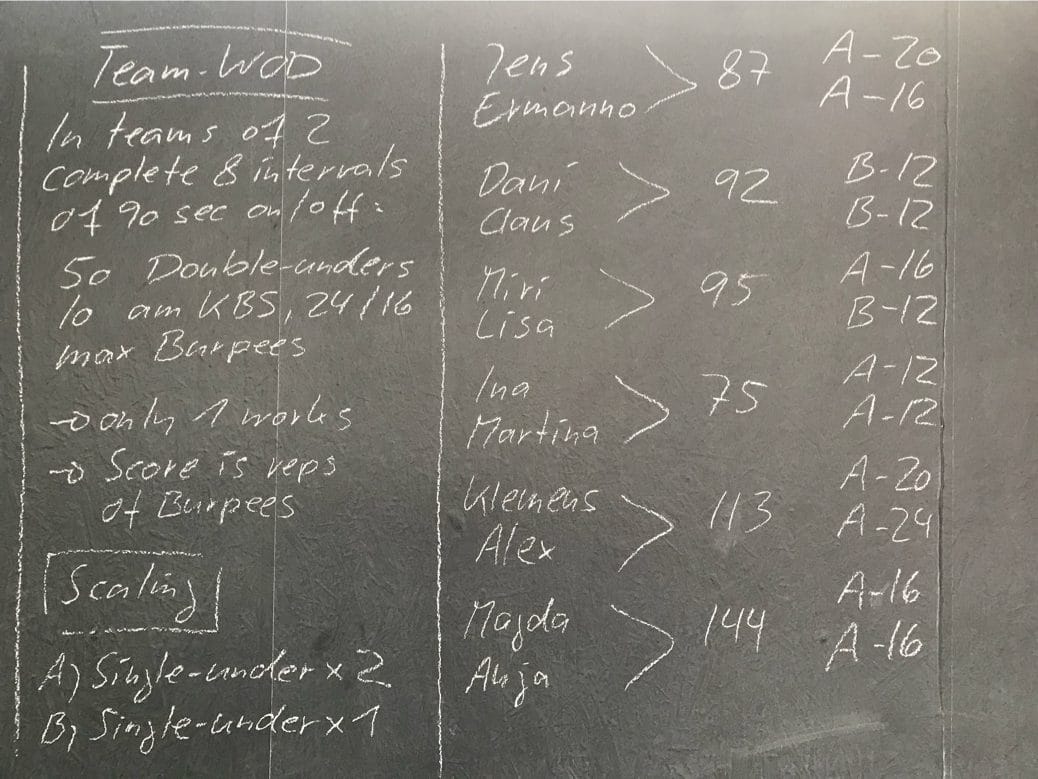 Team-WOD
In teams of 2
complete 8 intervals
of 90 sec on/off:
50 Double-unders
10 am KBS, 24/16
max Burpees
→ only 1 works
→ Score is reps
of Burpees
Scaling
A) Single-under x 2
B) Single-under x 1
Jens
Ermanno
87
A-20
A-16
Dani
Claus
92
B-12
B-12
Miri
Lisa
95
A-16
B-12
Ina
Martina
75
A-12
A-12
Klemens
Alex
113
A-20
A-24
Majda
Anja
144
A-16
A-16